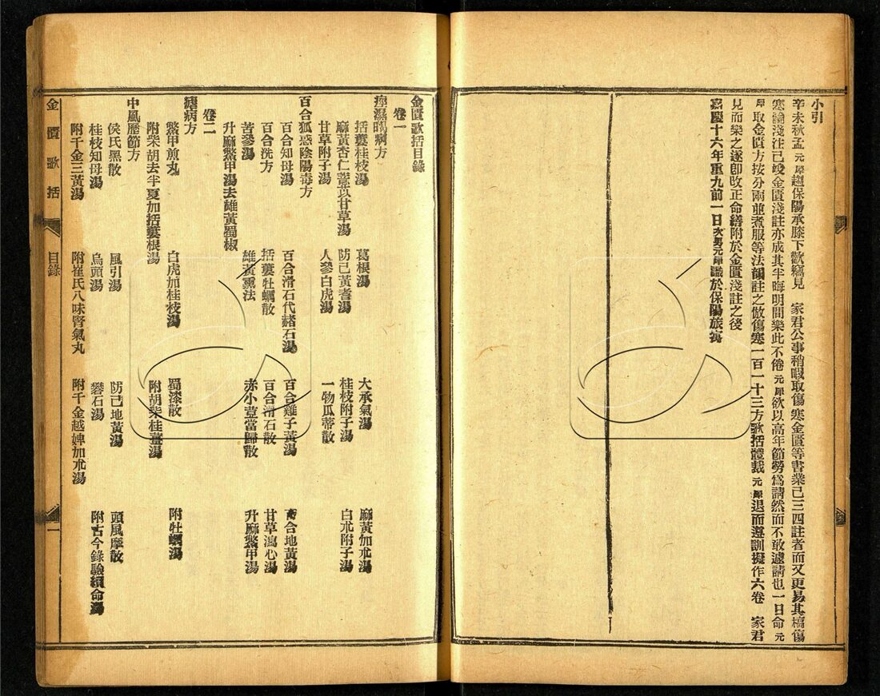 小引
辛未秋孟元犀趨保陽承膝下歡竊見　家君公事稍暇取傷寒金匱等書業已三四註者而又更易其稿傷
寒論淺注已竣金匱淺註亦成其半晦明間樂此不倦元犀欲以高年節勞為請然而不敢遽請也一日命元
犀取金匱方按分兩並煮服等法韻註之倣傷寒一百一十三方歌括體裁元犀退而遵訓擬作六卷　家君
見而樂之遂即改正命繕附於金匱淺註之後
嘉慶十六年重九前一日次男元犀識於保陽旅寓
金匱歌括目錄
卷一
痙濕暍病方
括蔞桂枝湯　葛根湯　大承氣湯　麻黃加朮湯
麻黃杏仁薏苡甘草湯　防己黃耆湯　桂枝附子湯　白朮附子湯
甘草附子湯　人參白虎湯　一物瓜蒂散
百合狐惑陰陽毒方
百合知母湯　百合滑石代赭石湯　百合雞子黃湯　百合地黃湯
百合洗方　括蔞牡蠣散　百合滑石散　甘草瀉心湯
苦參湯　雄黃熏法　赤小荳當歸散　升麻鱉甲湯
升麻鱉甲湯去雄黃蜀椒
卷二
瘧病方
鱉甲煎丸　白虎加桂枝湯　蜀漆散　附牡蠣湯
附柴胡去半夏加括蔞根湯　附柴胡桂薑湯
中風歷節方
侯氏黑散　風引湯　防己地黃湯　頭風摩散
桂枝知母湯　烏頭湯　礬石湯　附古今錄驗續命湯
附千金三黃湯　附崔氏八味腎氣丸　附千金越婢加朮湯
金匱歌括　目錄　一